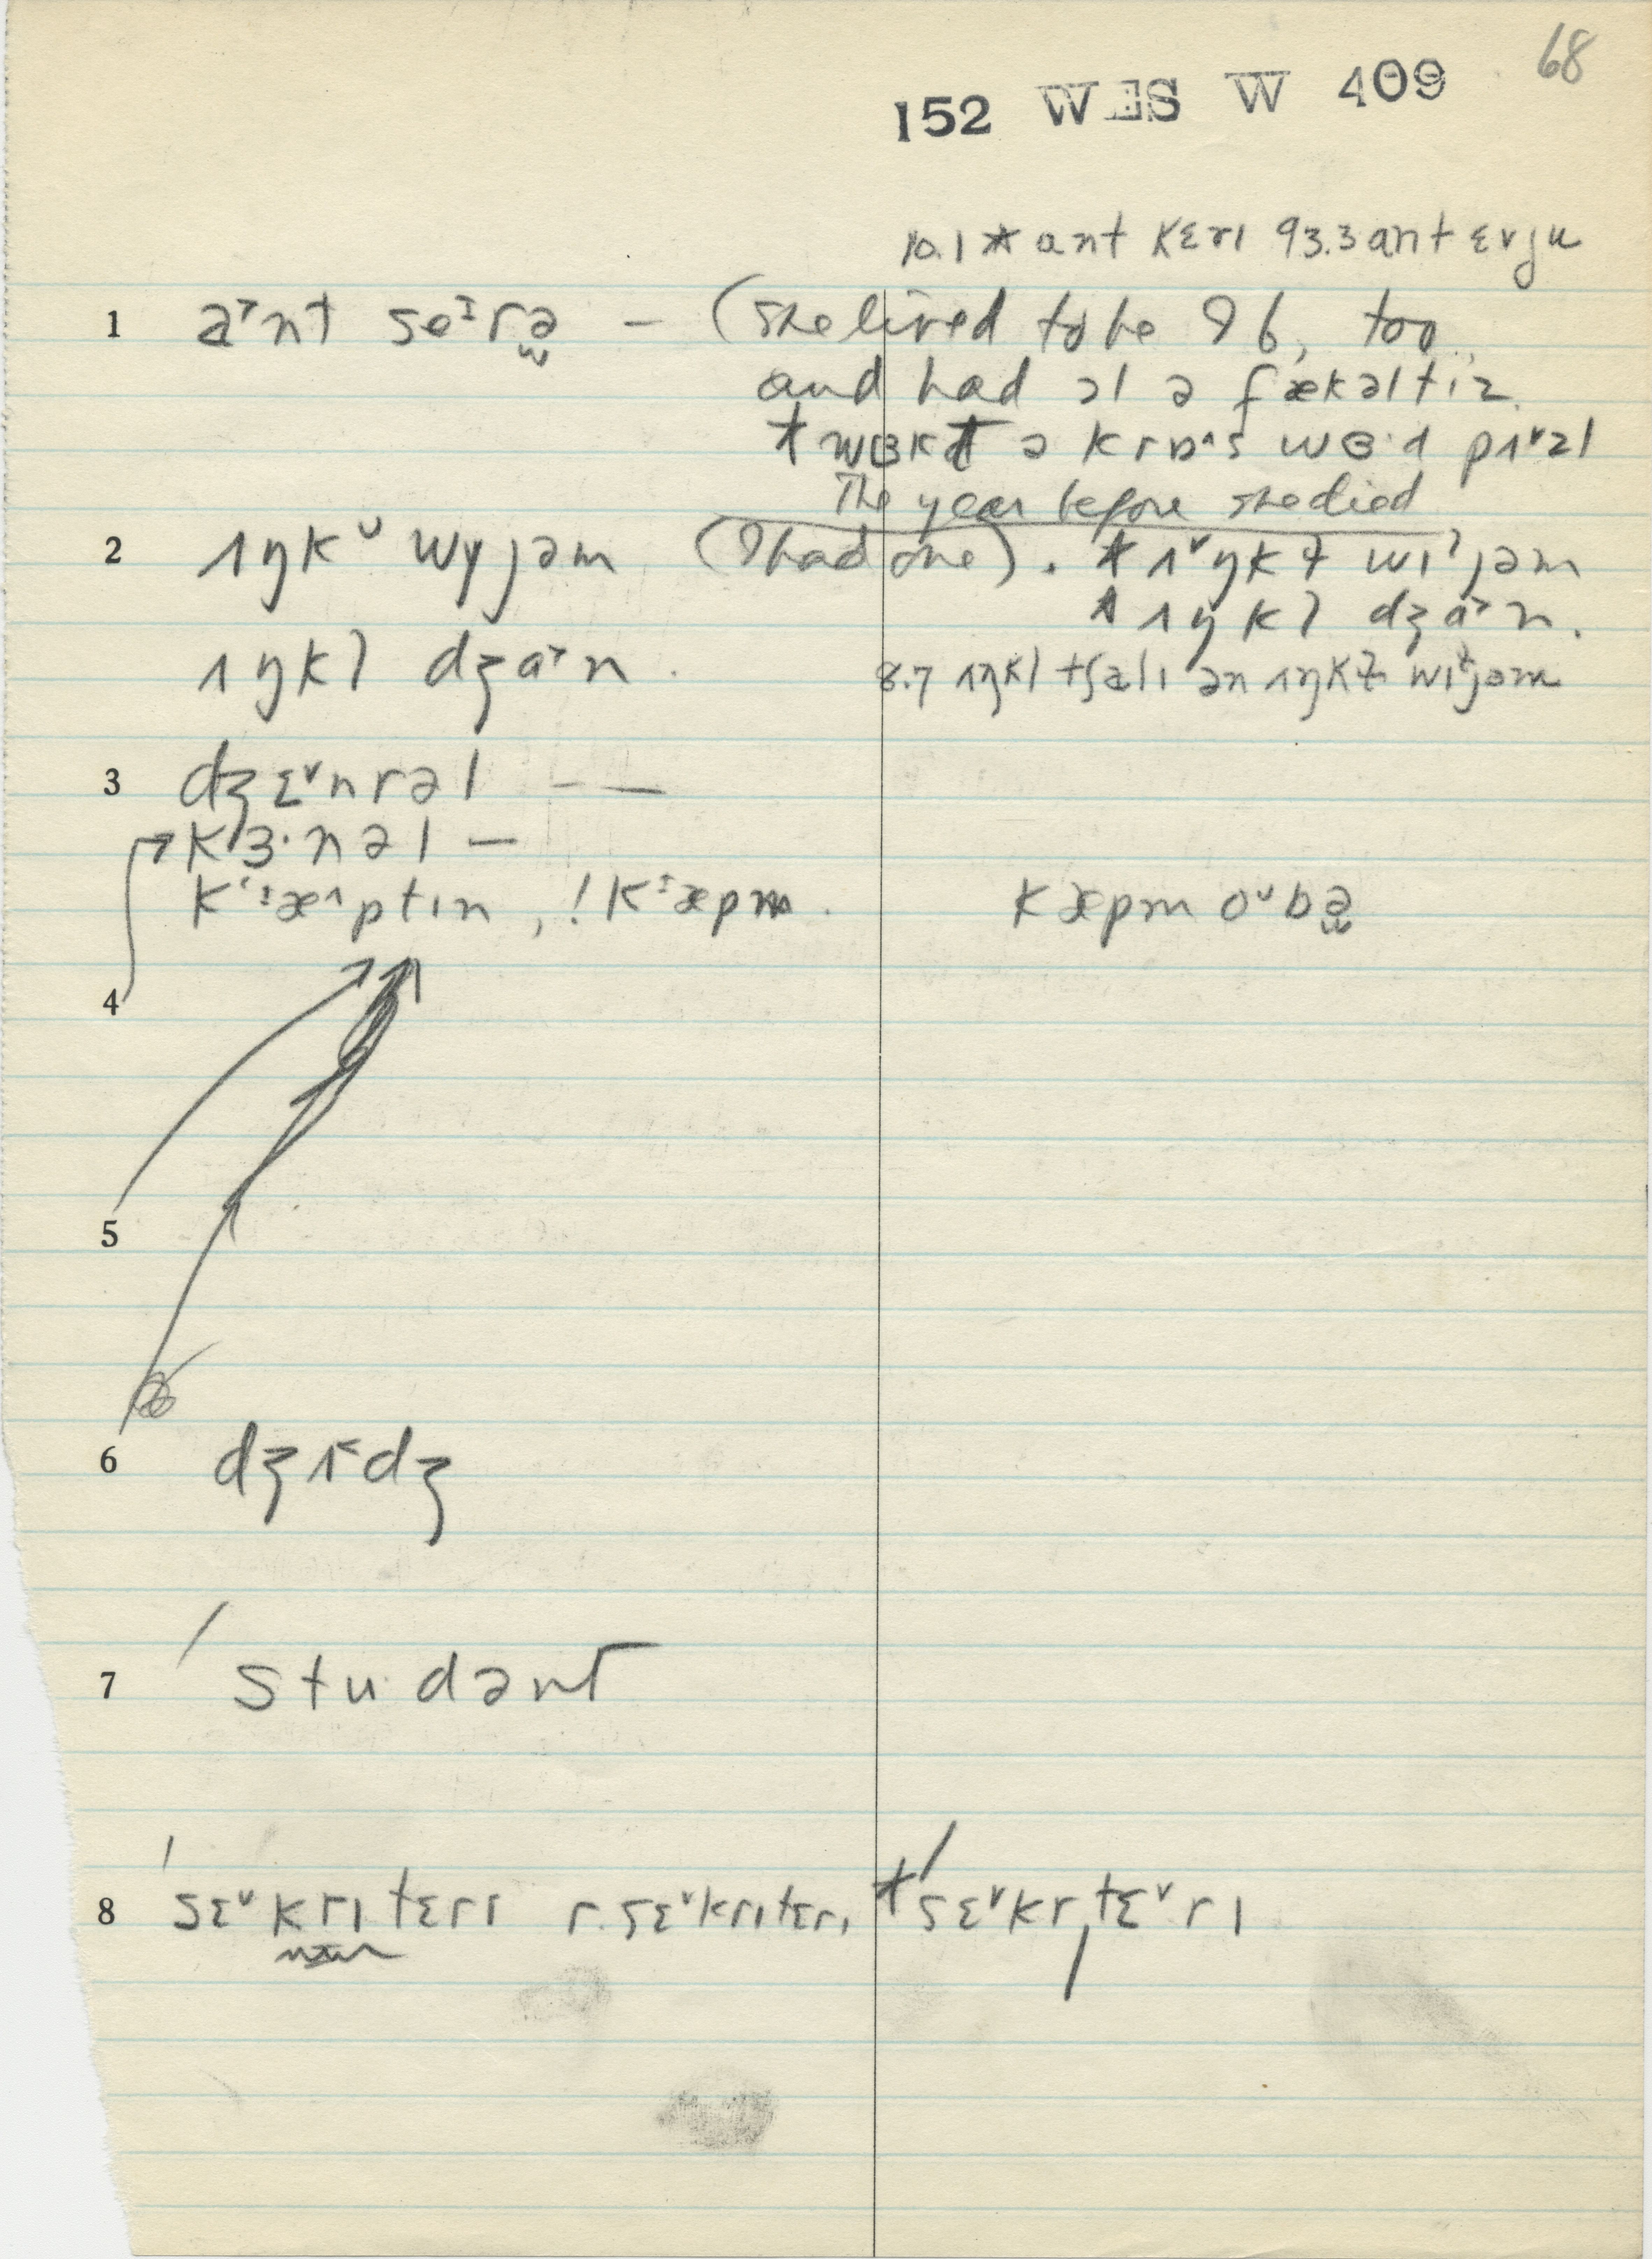 68
152 WES W 409
10.1 * ant kɛrɪ 93.3 ant ɛvjʉ
1 a˃nt seɪrə – (she lived to be 96, too,
and had ɔl ə fækəltɪz.
* wɜkt ə krɒ^s wɜ·d pʌ˅zl
The year before she died
2 ʌŋkᵘ wyjəm (I had one). * ʌ˅ŋkɫ wɪˀjəm
* ʌŋkl dʒa˃n.
ʌŋkl dʒa˃n. 8.7 ʌŋkl tʃalɪ ən ʌŋkɫ wɪɫjəm
3 dʒɛ˅nrəl – —
kɜ·nəl –
kæ^ptɪn, ! kæpm. kæpm o˅bə
4
5
6 dʒʌ˂dʒ
7 studənt
8 ˈsɛ˅krɪtɛrɪ r. sɛ˅krɪtɛrɪ * ˈsɛ˅krɪˌtɛ˅rɪ